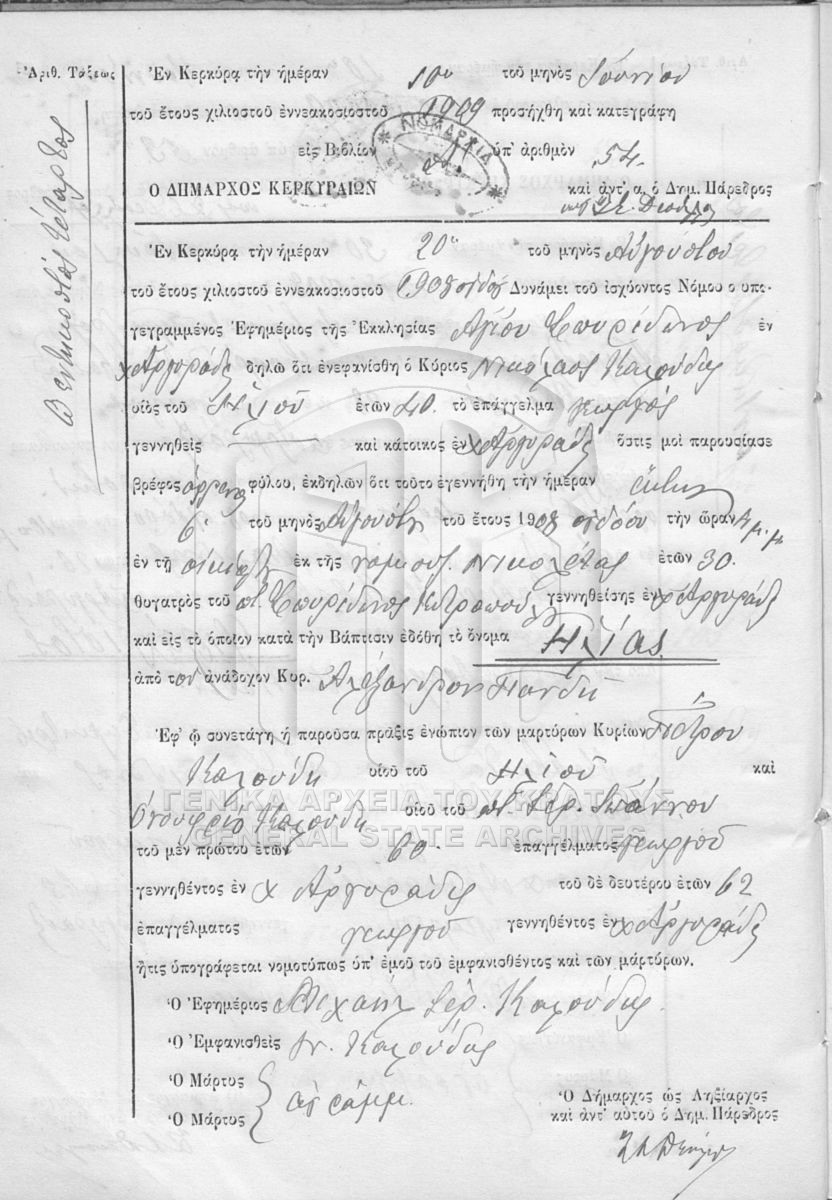 Ἀριθ. Τάξεως
πεντηκοστός τέταρτος
Ἐν Κερκύρᾳ τὴν ἡμέραν 10ην τοῦ μηνὸς Ἰουνίου
τοῦ ἔτους χιλιοστοῦ ἐννεακοσιοστοῦ 1909 προσήχθη καὶ κατεγράφη
εἰς Βιβλίον ὑπ' ἀριθμὸν 54.
ΝΟΜΑΡΧΙΑ
Ο ΔΗΜΑΡΧΟΣ ΚΕΡΚΥΡΑΙΩΝ καὶ ἀντ' α. ὁ Δημ. Πάρεδρος
Ἐν Κερκύρᾳ τὴν ἡμέραν 20ην τοῦ μηνὸς Αὐγούστου
τοῦ ἔτους χιλιοστοῦ ἐννεακοσιοστοῦ 1908 ὀγδόου Δυνάμει τοῦ ἰσχύοντος Νόμου ὁ ὑπο-
γεγραμμένος Ἐφημέριος τῆς Ἐκκλησίας Ἁγίου Σπυρίδωνος ἐν
χ Ἀργυράδες δηλῶ ὅτι ἐνεφανίσθη ὁ Κύριος Νικόλαος Καλούδης
υἱὸς τοῦ Ηλιοῦ ἐτῶν 40. τὸ ἐπάγγελμα γεωργός
γεννηθεὶς καὶ κάτοικος ἐν χ Ἀργυράδες ὅστις μοὶ παρουσίασε
βρέφος ἄρρενος φύλου, ἐκδηλῶν ὅτι τοῦτο ἐγεννήθη τὴν ἡμέραν ἕκτην
6. τοῦ μηνὸς Αὐγούστου τοῦ ἔτους 1908 ὀγδόου τὴν ὥραν 4 μ.μ
ἐν τῇ οἰκίᾳ ἐκ τῆς νομ. συζ. Νικολέτας ἐτῶν 30.
θυγατρὸς τοῦ Σπυρίδωνος γεννηθείσης ἐν χ Ἀργυράδες
καὶ εἰς τὸ ὁποῖον κατὰ τὴν Βάπτισιν ἐδόθη τὸ ὄνομα Ηλίας
ἀπὸ τοῦ ἀνάδοχον Κυρ. Ἀλέξανδρον Πανδῆ
Ἐφ' ᾧ συνετάγη ἡ παροῦσα πρᾶξις ἐνώπιον τῶν μαρτύρων Κυρίων Πέτρου
Καλούδη υἱοῦ τοῦ Ηλιοῦ καὶ
Ὀνουφρίου Καλούδη υἱοῦ τοῦ π. Σερ. Ἰωάννου
ΓΕΝΙΚΑ ΑΡΧΕΙΑ ΤΟΥ ΚΡΑΤΟΥΣ
GENERAL STATE ARCHIVES
τοῦ μὲν πρώτου ἐτῶν 60. ἐπαγγέλματος γεωργοῦ
γεννηθέντος ἐν χ Ἀργυράδες τοῦ δὲ δευτέρου ἐτῶν 62
ἐπαγγέλματος γεωργοῦ γεννηθέντος ἐν χ Ἀργυράδες
ἥτις ὑπογράφεται νομοτύπως ὑπ' ἐμοῦ τοῦ ἐμφανισθέντος καὶ τῶν μαρτύρων.
Ὁ Ἐφημέριος Μιχαήλ Ιερ. Καλούδης
Ὁ Ἐμφανισθεὶς Ν. Καλούδης
Ὁ Μάρτυς ἀγράμμ.
Ὁ Μάρτυς
Ὁ Δήμαρχος ὡς Ληξίαρχος
καὶ ἀντ' αὐτοῦ ὁ Δημ. Πάρεδρος